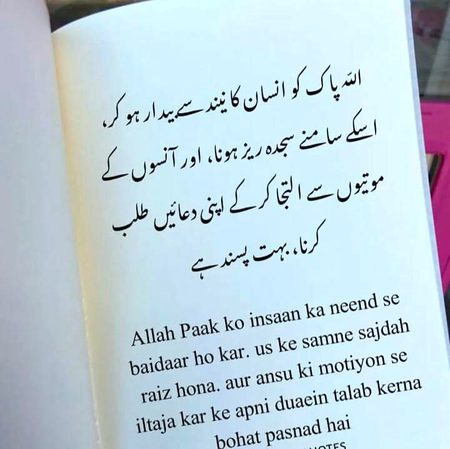 اللہ پاک کو انسان کا نیند سے بیدار ہو کر،
اسکے سامنے سجدہ ریز ہونا، اور آنسوں کے
موتیوں سے التجا کر کے اپنی دعائیں طلب
کرنا، بہت پسند ہے
Allah Paak ko insaan ka neend se
baidaar ho kar. us ke samne sajdah
raiz hona. aur ansu ki motiyon se
iltaja kar ke apni duaein talab kerna
bohat pasnad hai
QUOTES